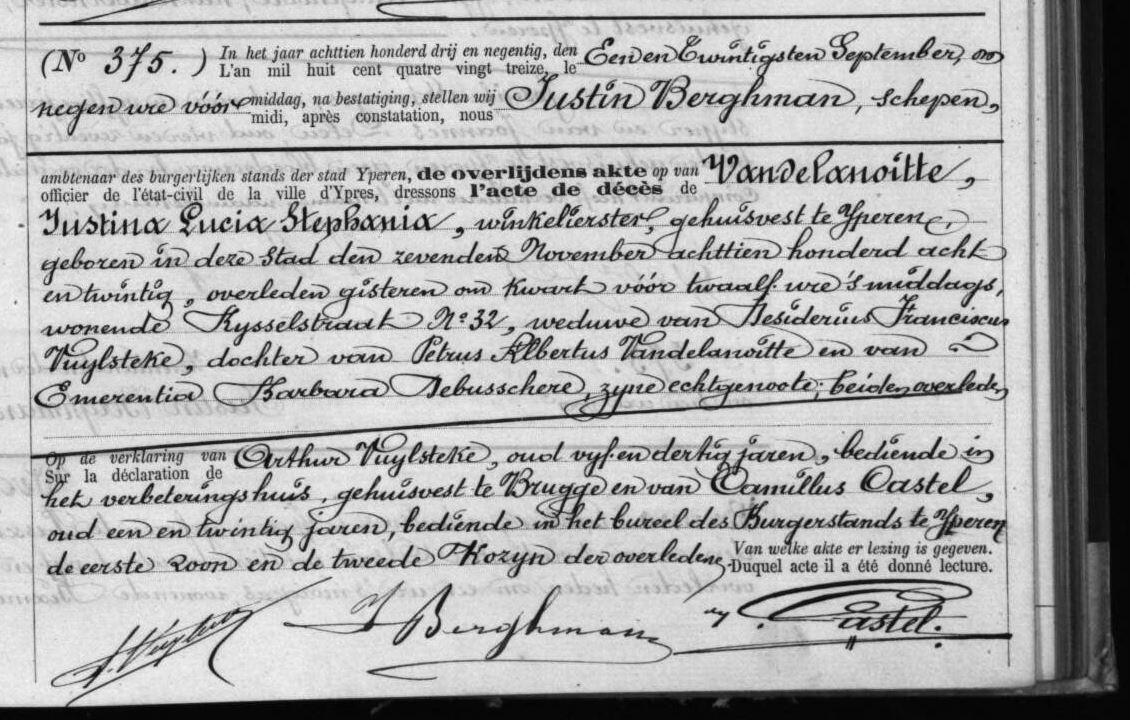 (No 375.) In het jaar achttien honderd drij en negentig, den Een en Twintigsten September, om
L'an mil huit cent quatre vingt treize, le
negen ure vóór middag, na bestatiging, stellen wij Justin Berghman, schepen,
midi, après constatation, nous
ambtenaar des burgerlijken stands der stad Yperen, de overlijdens akte op van Vandelanoitte,
officier de l'état-civil de la ville d'Ypres, dressons l'acte de décès de
Justina Lucia Stephania, winkelierster, gehuisvest te Yperen,
geboren in deze stad den zevenden November achttien honderd acht
en twintig, overleden gisteren om kwart vóór twaalf ure 's middags,
wonende Rysselstraat No 32, weduwe van Desiderius Franciscus
Vuylsteke, dochter van Petrus Albertus Vandelanoitte en van
Emerentia Barbara Debusschere, zyne echtgenoote; beiden overleden
Op de verklaring van Arthur Vuylsteke, oud vyf en dertig jaren, bediende in
Sur la déclaration de
het verbeteringshuis, gehuisvest te Brugge en van Camillus Castel,
oud een en twintig jaren, bediende in het bureel des Burgerstands te Yperen
de eerste zoon en de tweede Kozyn der overledene
Van welke akte er lezing is gegeven.
Duquel acte il a été donné lecture.
J Berghman
Castel.